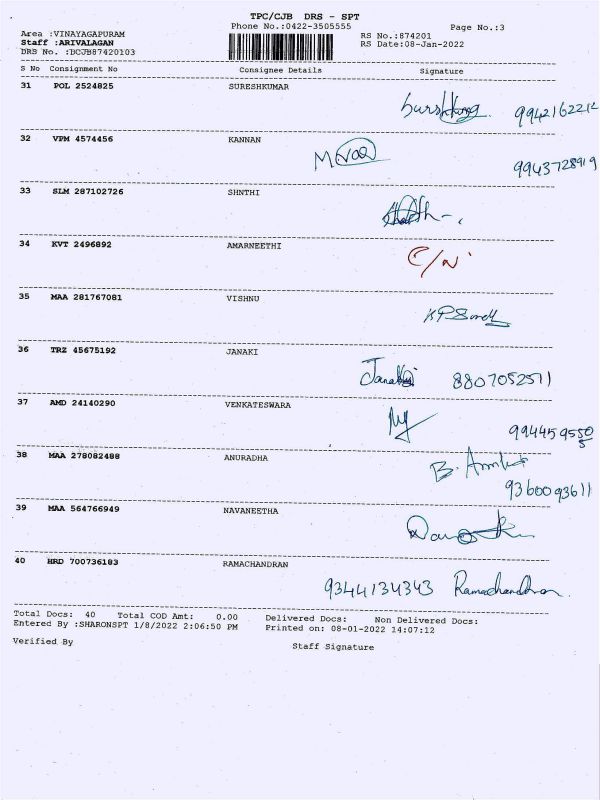 TPC/CJB DRS - SPT
Phone No.:0422-3505555 Page No.:3
Area :VINAYAGAPURAM RS No.:874201
Staff :ARIVALAGAN RS Date:08-Jan-2022
DRS No. :DCJB87420103
S No Consignment No Consignee Details Signature
31 POL 2524825 SURESHKUMAR 9942162212
32 VPM 4574456 KANNAN 9943728919
33 SLM 287102726 SHNTHI
34 KVT 2496892 AMARNEETHI C/N
35 MAA 281767081 VISHNU
36 TRZ 45675192 JANAKI Janaki 8807052511
37 AMD 24140290 VENKATESWARA
38 MAA 278082488 ANURADHA
9360093611
39 MAA 564766949 NAVANEETHA
40 HRD 700736183 RAMACHANDRAN
9344134343 Ramachandran
Total Docs: 40 Total COD Amt: 0.00 Delivered Docs: Non Delivered Docs:
Entered By :SHARONSPT 1/8/2022 2:06:50 PM Printed on: 08-01-2022 14:07:12
Verified By Staff Signature